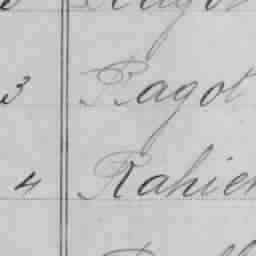 3 Ragot
4 Rahier